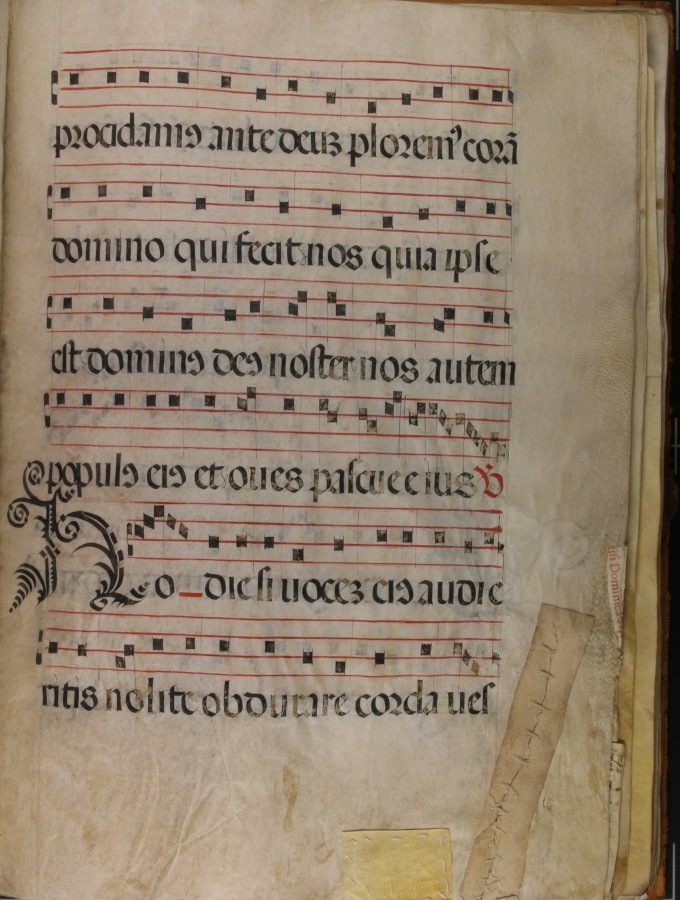 procidamꝰ ante deuʒ ploremꝰ corā
domino qui fecit nos quia ipse
est dominꝰ deꝰ noster nos autem
populꝰ eiꝰ et oues pascue eius ℣
Ho_die si uoceʒ eiꝰ audie
ritis nolite obdurare corda ues